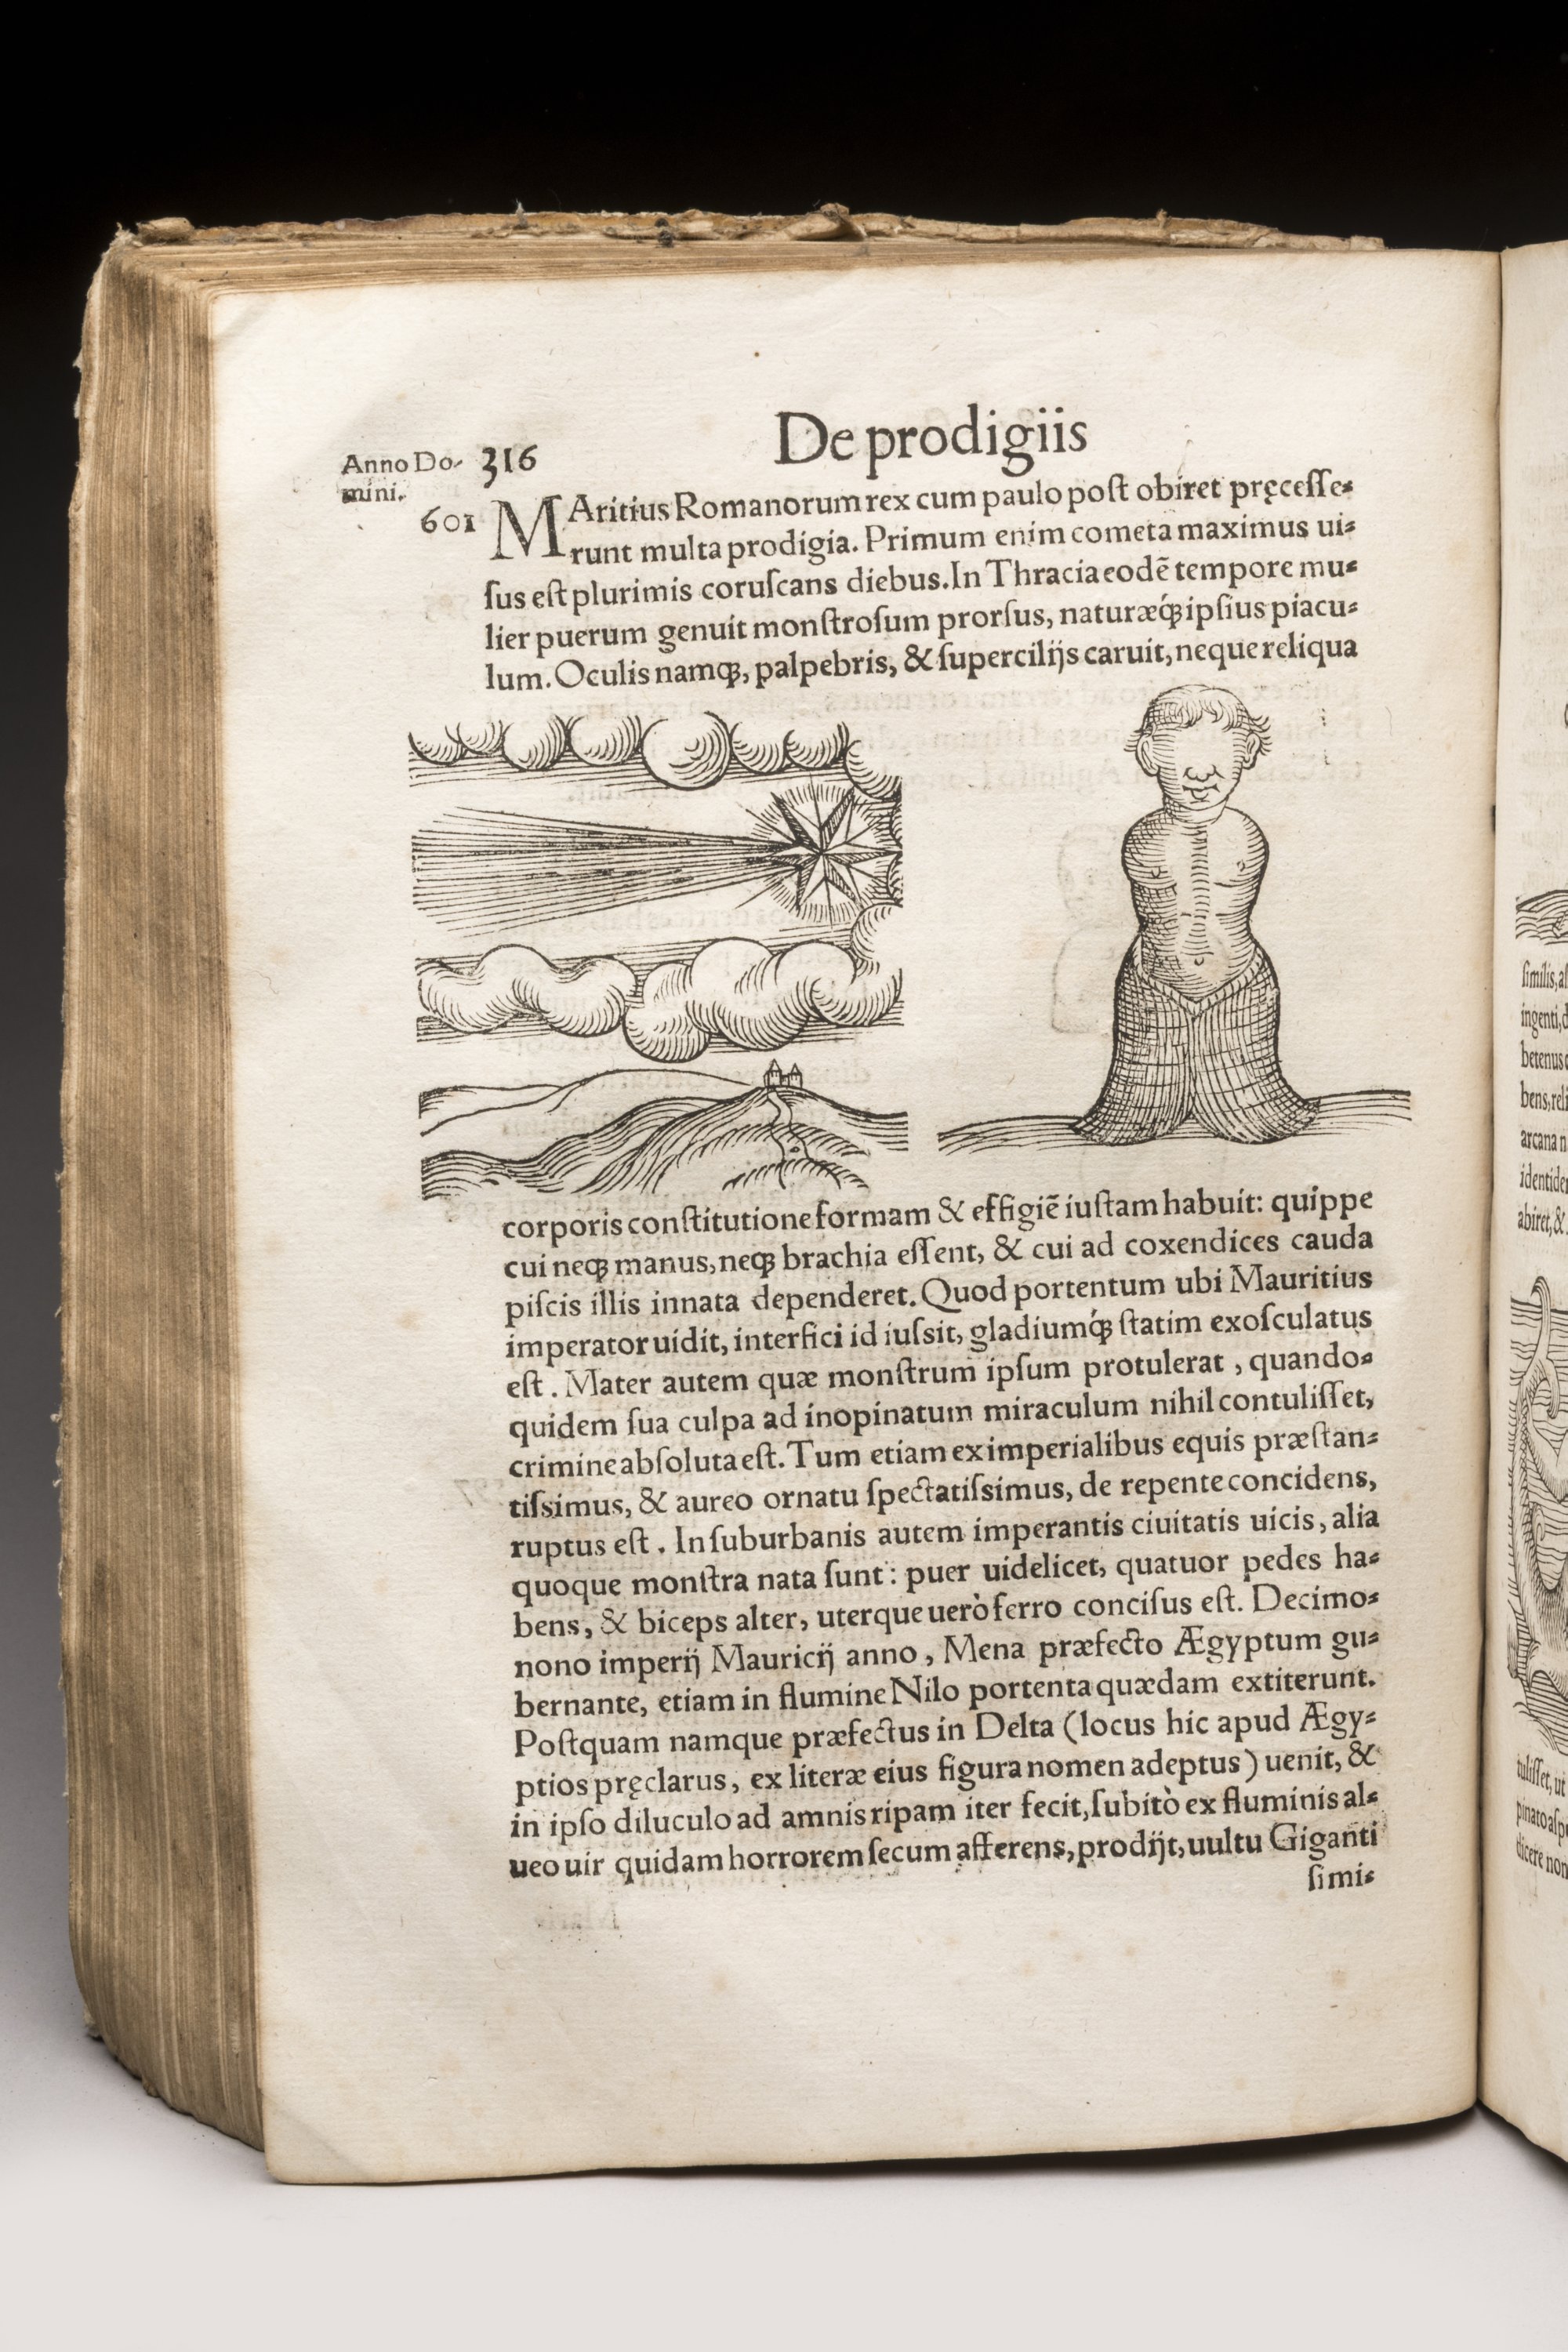 De prodigiis
Anno Do- 316
mini.
601 MAritius Romanorum rex cum paulo post obiret pręcesse-
runt multa prodigia. Primum enim cometa maximus ui-
sus est plurimis coruscans diebus. In Thracia eodē tempore mu-
lier puerum genuit monstrosum prorsus, naturæq́; ipsius piacu-
lum. Oculis namq;, palpebris, & supercilijs caruit, neque reliqua
corporis constitutione formam & effigiē iustam habuit: quippe
cui neq; manus, neq; brachia essent, & cui ad coxendices cauda
piscis illis innata dependeret. Quod portentum ubi Mauritius
imperator uidit, interfici id iussit, gladiumq́; statim exosculatus
est. Mater autem quæ monstrum ipsum protulerat, quando-
quidem sua culpa ad inopinatum miraculum nihil contulisset,
crimine absoluta est. Tum etiam ex imperialibus equis præstan-
tissimus, & aureo ornatu spectatissimus, de repente concidens,
ruptus est. In suburbanis autem imperantis ciuitatis uicis, alia
quoque monstra nata sunt: puer uidelicet, quatuor pedes ha-
bens, & biceps alter, uterque uerò ferro concisus est. Decimo-
nono imperij Mauricij anno, Mena præfecto Ægyptum gu-
bernante, etiam in flumine Nilo portenta quædam extiterunt.
Postquam namque præfectus in Delta (locus hic apud Ægy-
ptios pręclarus, ex literæ eius figura nomen adeptus) uenit, &
in ipso diluculo ad amnis ripam iter fecit, subitò ex fluminis al-
ueo uir quidam horrorem secum afferens, prodijt, uultu Giganti
simi-
similis, al
ingenti, d
betenus
bens, reli
arcana n
identide
abiret, &
tulisset, ut
pinato asp
dicere non